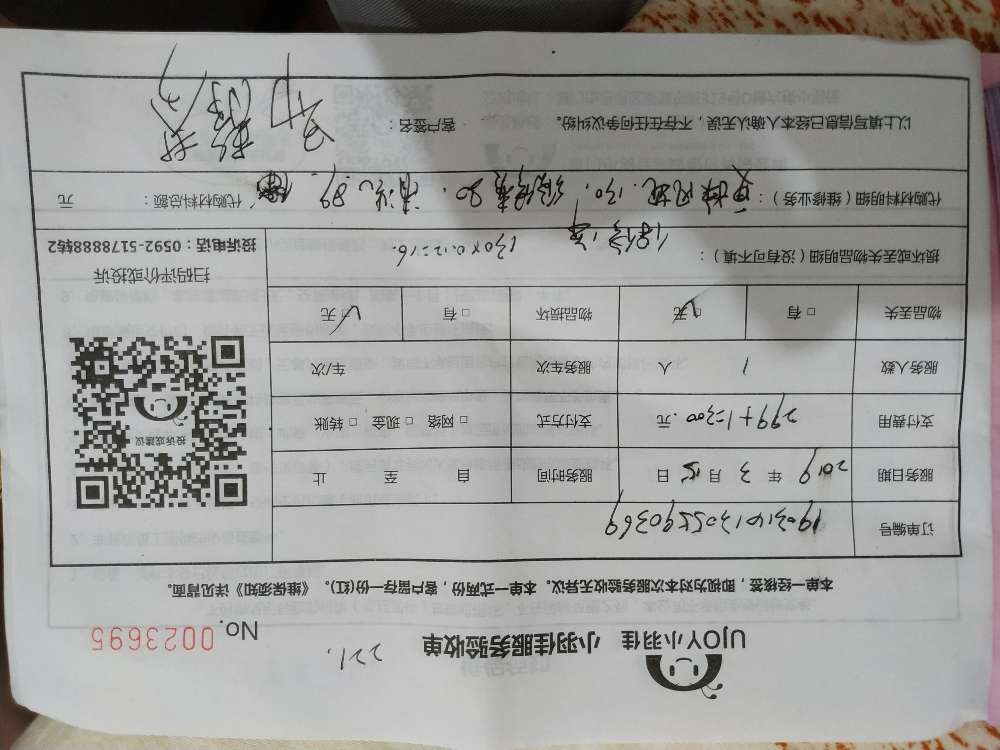 UJOY小羽佳 小羽佳服务验收单 221. No. 0023695
本单一经签核，即视为对本次服务验收无异议。本单一式两份，客户留存一份(红)。《维保须知》详见背面。
订单编号
服务日期 2019 年 3 月 15 日 服务时间 自 至 止
支付费用 299+1=300 元 支付方式 □ 网络 □ 现金 □ 转账
服务人数 1 人 服务车次 车/次
物品丢失 □ 有 □ 无 物品损坏 □ 有 □ 无
投诉或建议
扫码评价或投诉
投诉电话：0592-5178888转2
损坏或丢失物品明细（没有可不填）：
代购材料明细（维修业务）： 130. 20. 清洗.89. 代购材料总额： 元
以上填写信息已经本人确认无误，不存在任何争议纠纷。 客户签名：